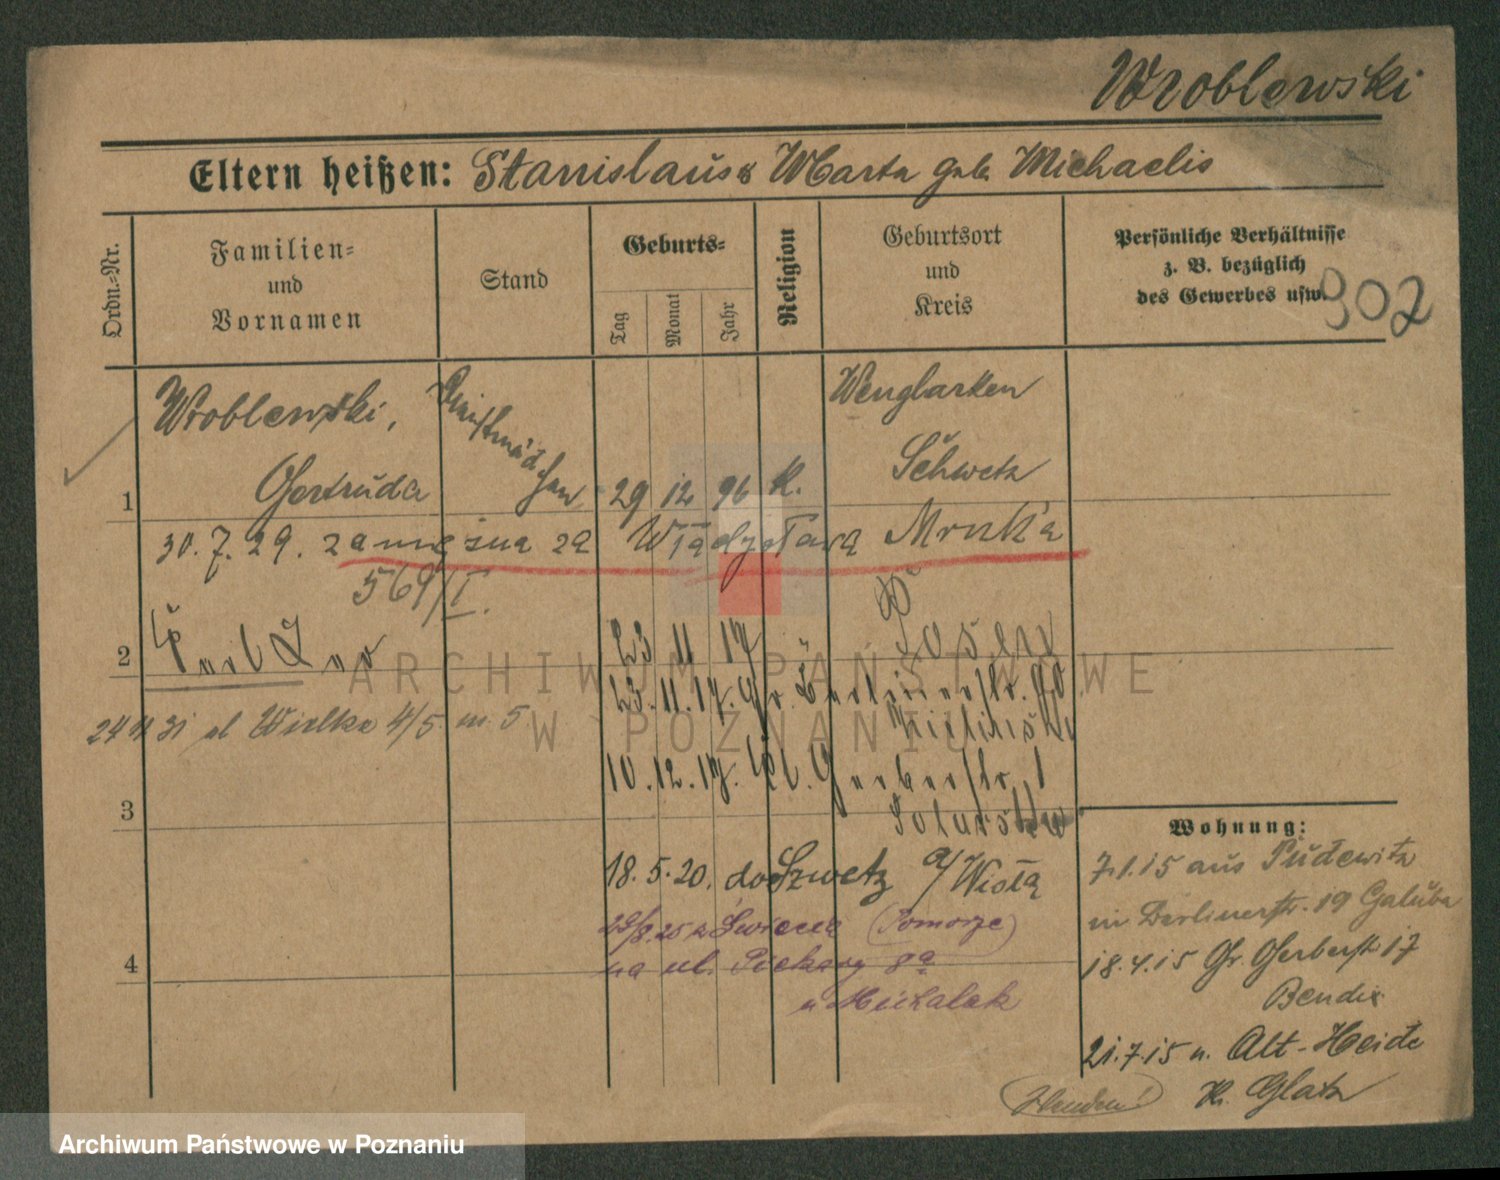 Wroblewski
Eltern heißen: Stanislaus & Marta geb. Michaelis
Ordn.-Nr.
Familien-
und
Vornamen
Stand
Geburts-
Tag
Monat
Jahr
Religion
Geburtsort
und
Kreis
Persönliche Verhältnisse
z. B. bezüglich
des Gewerbes usw.
902
1
Wroblewski,
Gertruda
Dienstmädchen
29 12 96 K.
Wenglarken
Schwetz
30.7.29. zamężna za Władysława Mruk'a
569/I.
2
23 11 17 Posen
23.11.17. Gr. Berlinerstr. 90
24 11 31 ul Wielka 4/5 m. 5
10.12.17. Kl. Gerberstr. 1
3
18.5.20. do Szwetz a/Wisłą
z Świecia (Pomorze)
na ul. Piekary 8a
u Michalak
4
Wohnung:
7.1.15 aus Pudewitz
in Berlinerstr. 19 Galuba
18.4.15 Gr. Gerberstr. 17
Bendix
21.7.15 n. Alt-Heide
K. Glatz
ARCHIWUM PAŃSTWOWE
W POZNANIU
Archiwum Państwowe w Poznaniu